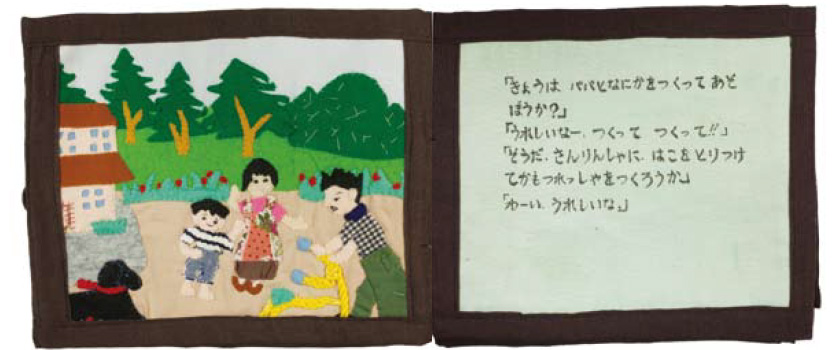 「きょうは、パパとなにかをつくってあそ
ぼうか?」
「うれしいなー、つくって つくって!!」
「そうだ、さんりんしゃに、はこをとりつけ
てかもつれっしゃをつくろうか」
「わーい、うれしいな」